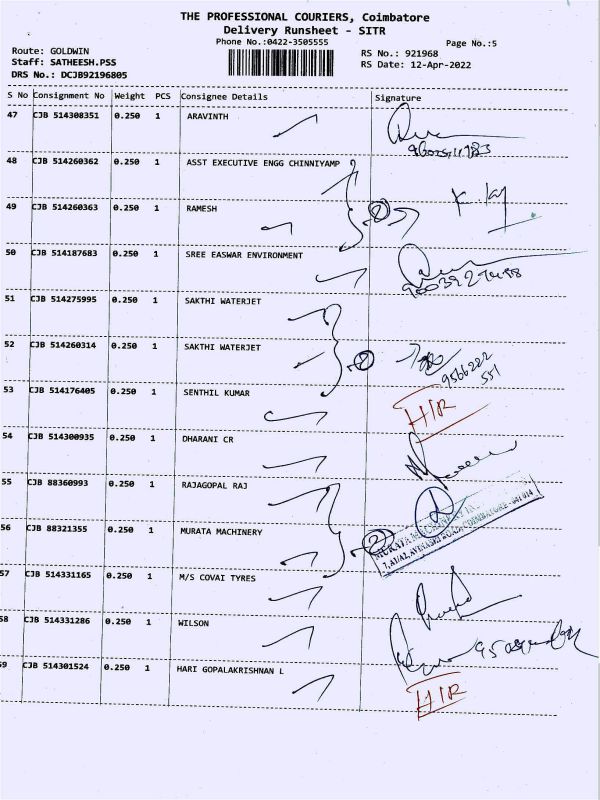 THE PROFESSIONAL COURIERS, Coimbatore
Delivery Runsheet - SITR
Phone No.:0422-3505555
Page No.:5
Route: GOLDWIN
RS No.: 921968
Staff: SATHEESH.PSS
RS Date: 12-Apr-2022
DRS No.: DCJB92196805
S No Consignment No Weight PCS Consignee Details Signature
47 CJB 514308351 0.250 1 ARAVINTH
48 CJB 514260362 0.250 1 ASST EXECUTIVE ENGG CHINNIYAMP
49 CJB 514260363 0.250 1 RAMESH
2
50 CJB 514187683 0.250 1 SREE EASWAR ENVIRONMENT
51 CJB 514275995 0.250 1 SAKTHI WATERJET
52 CJB 514260314 0.250 1 SAKTHI WATERJET
2
9566222
551
53 CJB 514176405 0.250 1 SENTHIL KUMAR
H/R
54 CJB 514300935 0.250 1 DHARANI CR
55 CJB 88360993 0.250 1 RAJAGOPAL RAJ
56 CJB 88321355 0.250 1 MURATA MACHINERY
2
MURATA
COIMBATORE - 641 014
57 CJB 514331165 0.250 1 M/S COVAI TYRES
58 CJB 514331286 0.250 1 WILSON
59 CJB 514301524 0.250 1 HARI GOPALAKRISHNAN L
H/R